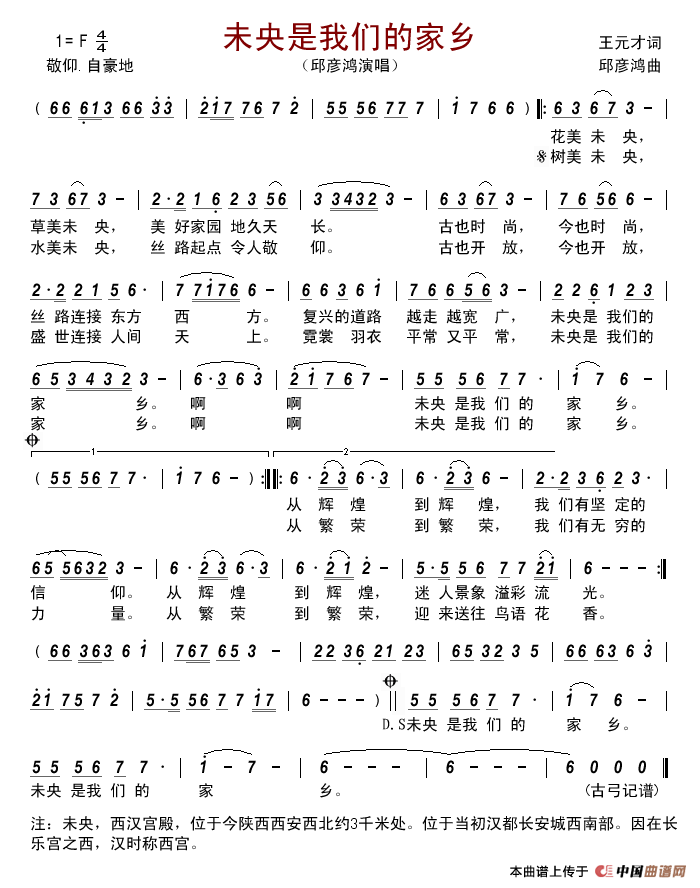 未央是我们的家乡
1= F 4/4
王元才词
敬仰.自豪地
（邱彦鸿演唱）
邱彦鸿曲
( 66 613 66 33 | 217 76 7 2 | 55 56 77 6 - | 1 7 66 - ) ‖: 63 67 3 - |
花美 未 央，
树美 未 央，
73 67 3 - | 2·2 1 6 2 3 56 | 3 3432 3 - | 63 67 3 - | 76 56 6 - |
草美未 央， 美 好家园 地久天 长。 古也时 尚， 今也时 尚，
水美未 央， 丝 路起点 令人敬 仰。 古也开 放， 今也开 放，
2·2 21 56· | 7 7176 6 - | 66 36 61 | 76 65 56 3 - | 226 1 23 |
丝 路连接 东方 西 方。 复兴的道路 越走 越宽 广， 未央是 我们的
盛 世连接 人间 天 上。 霓裳 羽衣 平常 又平 常， 未央是 我们的
65 3432 3 - | 6·3 63 | 21 76 7 - | 55 56 77· | 17 6 - |
家 乡。 啊 啊 未央 是我 们 的 家 乡。
家 乡。 啊 啊 未央 是我 们 的 家 乡。
1 2
( 55 56 77· | 176 - ) :‖: 6· 23 6·3 | 6· 23 6 - | 2·2 36 23· |
从 辉 煌 到 辉 煌， 我 们有坚 定的
从 繁 荣 到 繁 荣， 我 们有无 穷的
65 5632 3 - | 6· 23 6·3 | 6· 21 2 - | 5·5 56 77 21 | 6 - - - :‖
信 仰。 从 辉 煌 到 辉 煌， 迷 人景象 溢彩 流 光。
力 量。 从 繁 荣 到 繁 荣， 迎 来送往 鸟语 花 香。
( 66 363 6 1 | 767 65 3 - | 22 36 21 23 | 65 32 35 | 66 63 6 - |
21 75 7 2 | 5·5 56 77 17 | 6 - - - ) ‖ 55 56 77· | 17 6 - |
D.S未央 是我 们 的 家 乡。
55 56 77· | 1 - 7 - | 6 - - - | 6 - - - | 6 0 0 0 ‖
未央 是我 们 的 家 乡。 （古弓记谱）
注：未央，西汉宫殿，位于今陕西西安西北约3千米处。位于当初汉都长安城西南部。因在长
乐宫之西，汉时称西宫。
本曲谱上传于 中国曲谱网